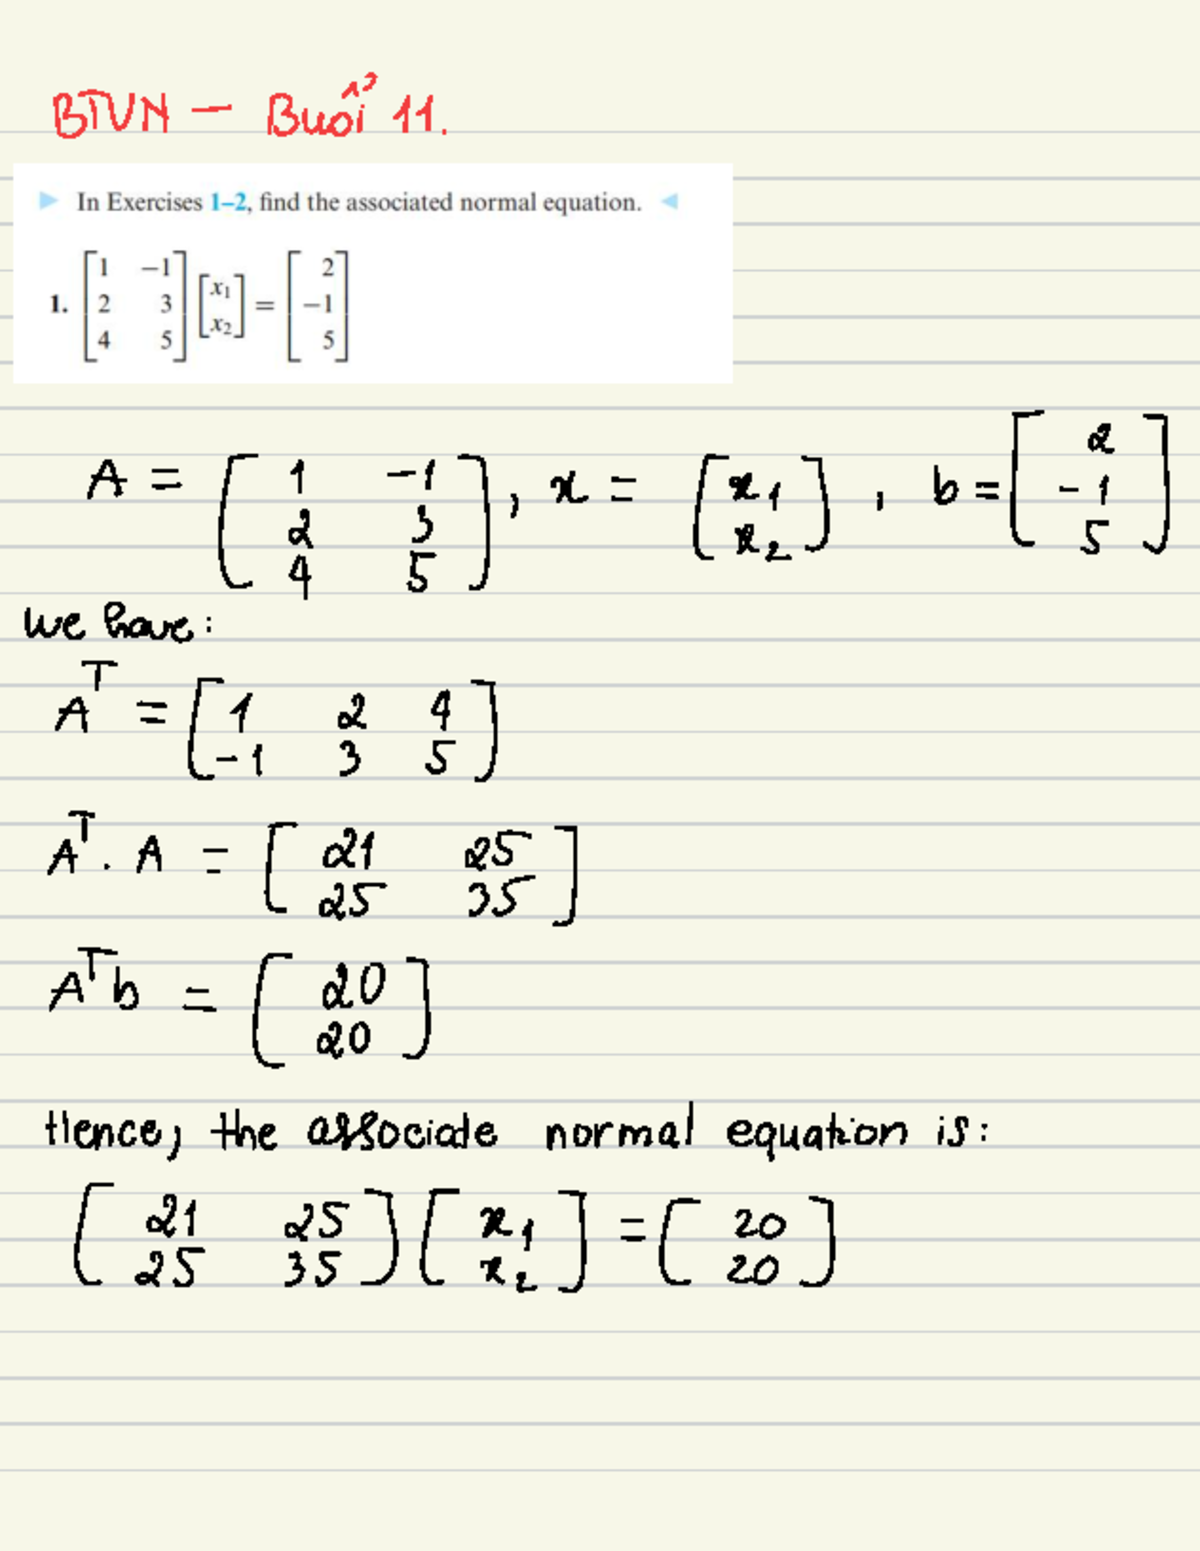 BTVN – Buổi 11.
In Exercises 1–2, find the associated normal equation.
1. [1 −1; 2 3; 4 5] [x₁; x₂] = [2; −1; 5]
A = [1 -1; 2 3; 4 5], x = [x₁; x₂], b = [2; -1; 5]
We have:
Aᵀ = [1 2 4; -1 3 5]
Aᵀ. A = [21 25; 25 35]
Aᵀb = [20; 20]
Hence, the associate normal equation is:
[21 25; 25 35] [x₁; x₂] = [20; 20]